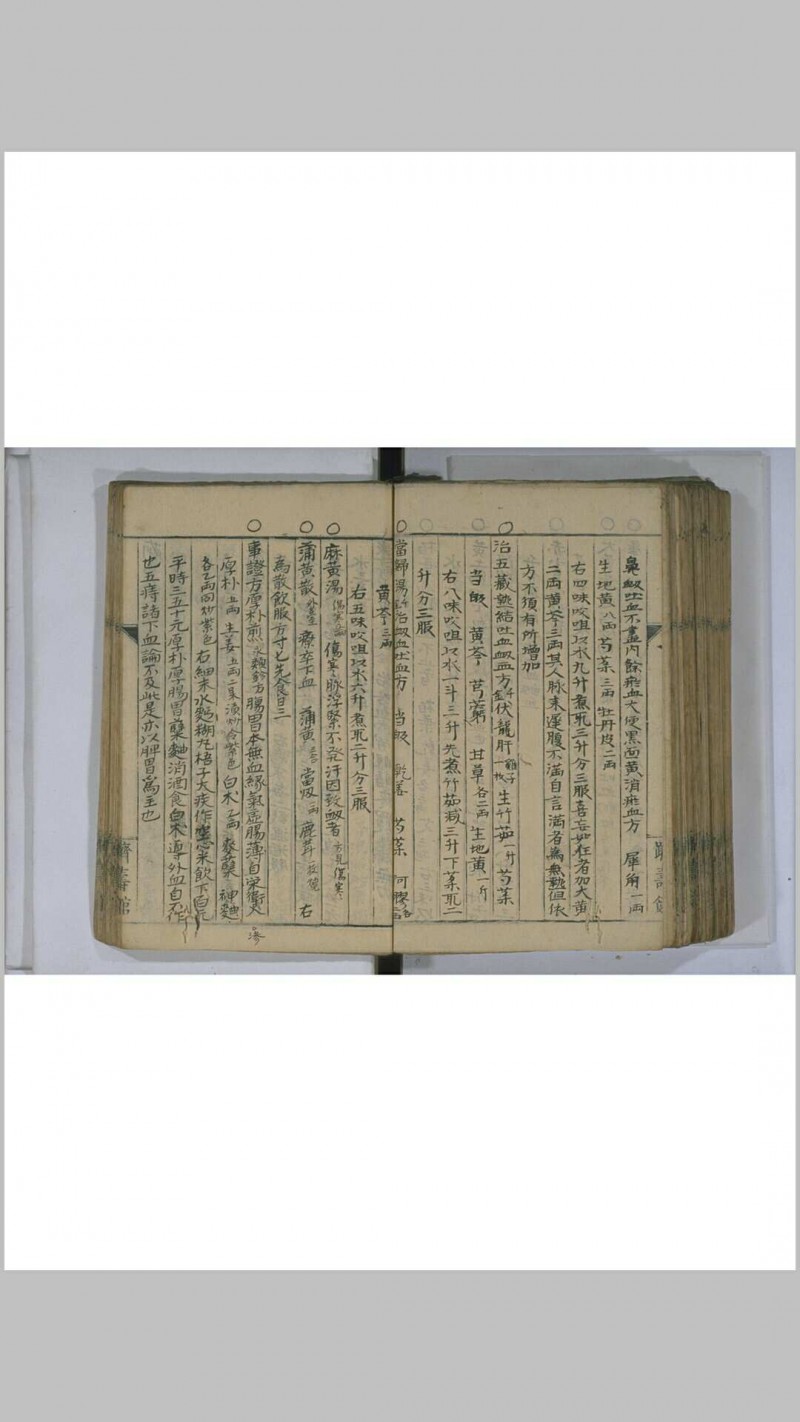 鼻衂吐血不盡內餘瘀血大便黑面黃消瘀血方　犀角一両
生地黃八両　芍薬三両　牡丹皮二両
右四味㕮咀以水九升煮取三升分三服喜妄如狂者加大黃
二両黃芩三両其人脉未遲腹不滿自言滿者為無熱但依
方不須有所增加
治五藏熱結吐血衂血方　伏龍肝　生竹茹一升　芍薬
當皈　黃芩　芎藭　甘草各二両　生地黃一斤
右八味㕮咀以水一斗三升先煮竹茹減三升下薬取二
升分三服
當歸湯　治衂血吐血方　当皈　乾姜　芍薬　阿膠各
黃芩三両
右五味㕮咀以水六升煮取二升分三服
麻黃湯　傷寒論　傷寒脉浮緊不発汗因致衂者　方見傷寒
蒲黃散　外臺　療卒下血　蒲黃　當皈一両　鹿茸一枚　右
為散飲服方寸匕先食日三
事證方厚朴煎　腸胃本無血緣氣虛腸薄自榮衛
厚朴五両　生姜五両　炒令紫色　白朮乙両　麥蘖　神麯
各乙両同炒紫色　右細末水麪糊丸梧子大疾作空心米飲下百元
平時三五十元厚朴厚腸胃蘖麯消酒食白朮導外血自不作
也五痔諸下血論不及此是亦以脾胃為主也
滲
躋壽館
躋壽館